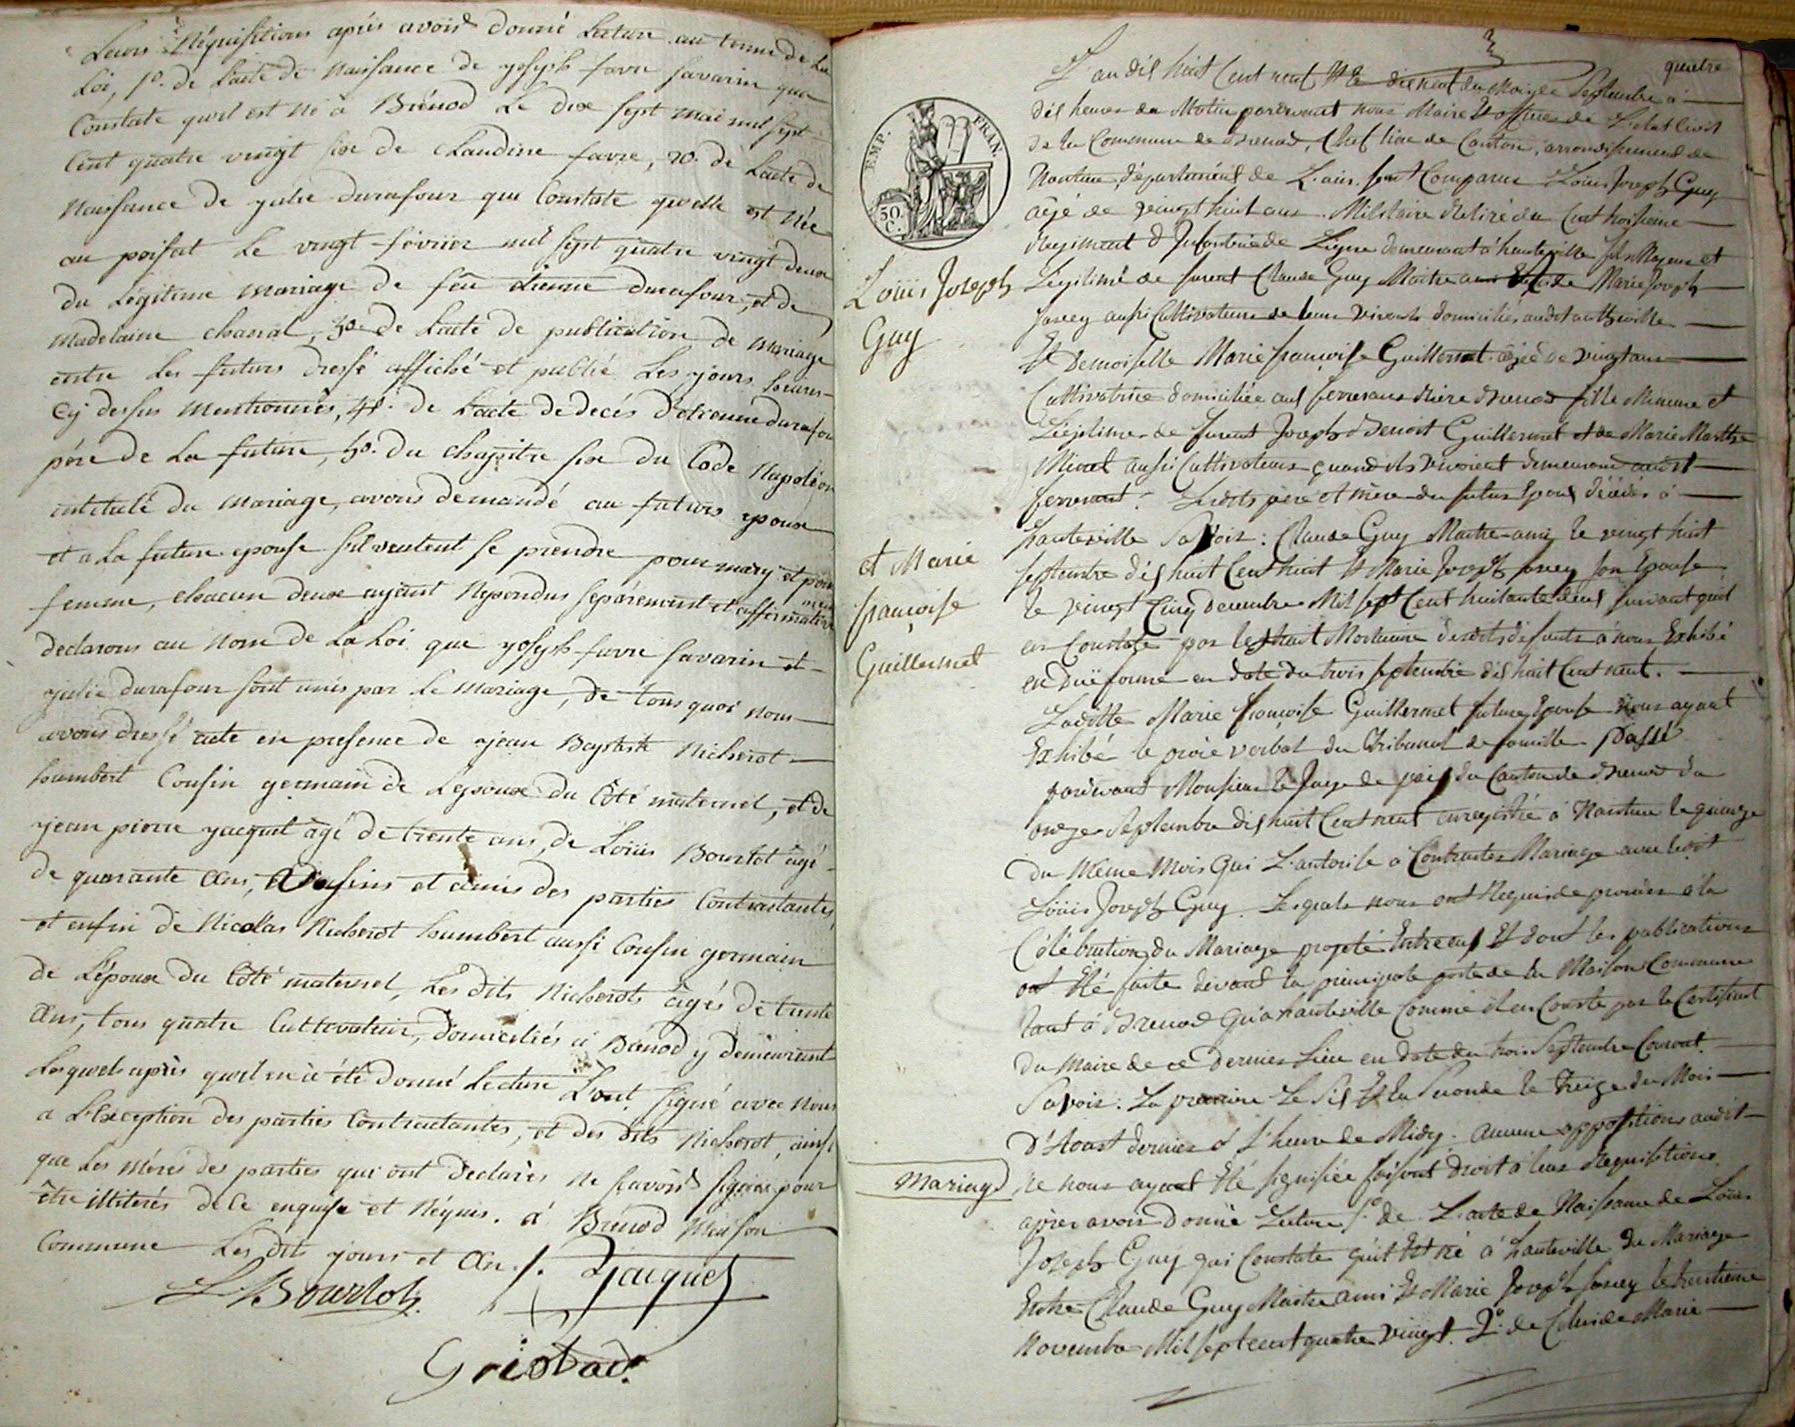 Leurs Réquisitions après avoir donné Lecture au terme de La
Loi, 1º. de L'acte de Naissance de yoseph favre savarin que
Constate qu'il est Né à Brénod Le dix sept mai mil sept
Cent quatre vingt six de Claudine favre, 2º. de L'acte de
Naissance de julie durafour qui Constate qu'elle est Née
au poisat Le vingt février mil sept quatre vingt deux
du Légitime mariage de feu étienne durafour, et de
Madelaine Chanal, 3º. de L'acte de publication de mariage
entre les futurs dressé affiché et publié Les yours heures
Cy dessus mentionnés, 4º. de L'acte de decés d'étienne durafour
père de La future, 5º. du Chapitre six du Code Napoléon
intitulé du mariage, avons demandé au futurs epoux
et a La future epouse s'il veulent se prendre pour mary et pour
femme, chacun deux ayant Répondus séparément et affirmativement
declarons au nom de La Loi que yoseph favre savarin et
julie durafour sont unis par Le mariage, de tous quoi nous
avons dressé acte en presence de yean Baptiste Nicherot
humbert Cousin germain de L'epoux du Côté maternel, et de
yean pierre yacquet âgé de trente ans, de Loüis Bourlot âgé
de quarante ans, Cousins et amis des parties Contractantes,
et enfin de Nicolas Nicherot humbert aussi Cousin germain
de L'époux du Côté maternel, Les dits Nicherots âgés de trente
ans, tous quatre Cultivateurs, domiciliés à Brénod y demeurant
Lesquels après qu'il en a été donné Lecture L'ont signé avec nous
a L'exception des parties Contractantes, et des dits Nicherot, ainsi
que Les méres des parties qui ont déclarés ne savoir signer pour
être illiterés de ce enquise et Réquis. à Brénod Maison
Commune Les dit yours et an.
L Bourlot. Jacquet
Gristad.
quatre
L'an dix huit Cent neuf Et le dix neuf du Mois de Septembre à
dix heures du Matin pardevant nous Maire Et officier de L'état Civil
de la Commune de Brenod, Chef lieu de Canton, arrondissement de
Nantua, département de L'ain. sont Comparus Loüis Joseph Guy
âgé de vingt huit ans. Militaire Retiré du Cent troisieme
Regiment d'Infanterie de Ligne demeurant à hauteville fils Majeur et
Légitime de furent Claude Guy Maitre ami Et de Marie Joseph
Jarcey aussi Cultivateurs de leur vivant domiciliés audit autheville
Et Demoiselle Marie françoise Guillermet âgée de vingt ans
Cultivatrice domiciliée aux ferrerans Riere Brenod fille Mineure et
Légitime de furent Joseph Benoit Guillermet et de Marie Marthe
Minet aussi Cultivateurs quand ils vivoient demeurant audit
ferrerant: Lesdits père et mère du futur Epoux décédés à
hauteville Savoir: Claude Guy Maitre ami le vingt huit
septembre dix huit Cent huit Et Marie Joseph Jarcey son Epouse
le vingt Cinq decembre Mil sept Cent huitante deux suivant qu'il
en Constate par l'extrait Mortuaire desdits défunts à nous Exhibé
en Duë forme en date du trois septembre dix huit Cent neuf.
Ladite Marie françoise Guillermet future Epouse Nous ayant
Exhibé le procé verbal du tribunal de famille passé
pardevant Monsieur le Juge de paix du Canton de Brenod du
onze Septembre dix huit Cent neuf enregistré à Nantua le quinze
du Même Mois Qui L'autorise à Contracter Mariage avec ledit
Loüis Joseph Guy. Lesquels nous ont Requis de proceder à la
Célébration du Mariage projeté Entre eux Et dont les publications
ont Eté faite devant la principale porte de la Maison Commune
tant à Brenod qu'a hauteville Comme il en Conste par le Certificat
du Maire de ce Dernier Lieu en date du trois Septembre Courant.
Savoir: La premiere Le Six Et la Seconde le treize du Mois
D'Aoust dernier à L'heure de Midy. aucune oppositions audit
Mariage ne nous ayant Eté signifiée faisant Droit à leur Requisitions
après avoir Donnée Lecture 1º. de L'acte de Naissance de Loüis
Joseph Guy qui Constate qu'il Est né à hauteville du Mariage
Entre Claude Guy Maitre ami Et Marie Joseph Jarcey le trentieme
Novembre Mil sept cent quatre vingt. 2º. de Celui de Marie
EMP. FRAN.
50.
C.
Loüis Joseph
Guy
et Marie
françoise
Guillermet